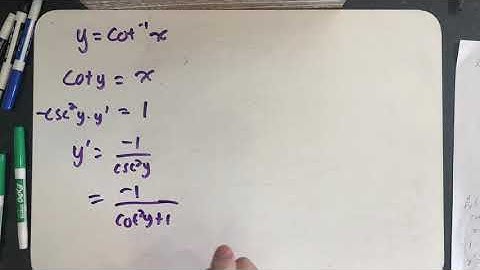 y = cot⁻¹ x
cot y = x
-csc²y · y' = 1
y' = -1/csc²y
= -1/cot²y+1